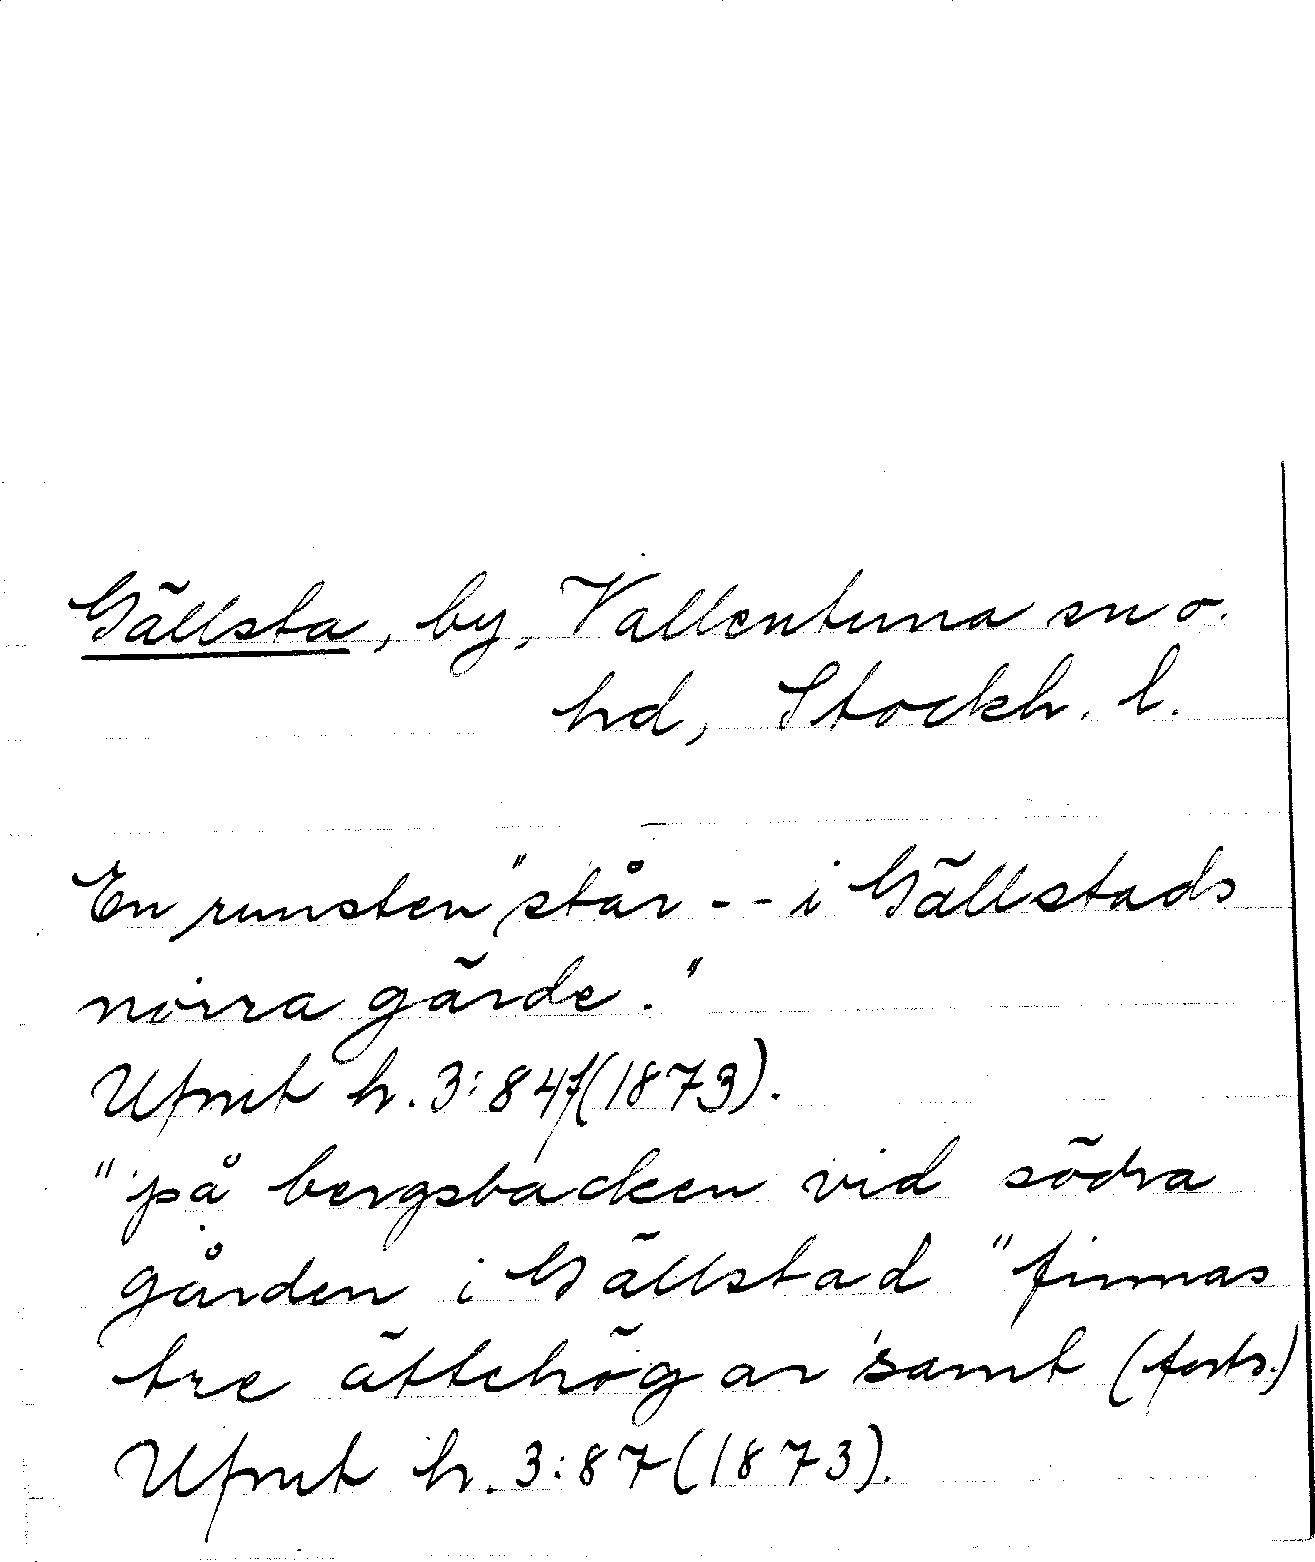 Gällsta, by, Vallentuna sn o.
hd, Stockh. l.
En runsten "står -- i Gällstads
norra gärde."
Ufmt h. 3:84f(1873).
"på bergsbacken vid södra
gården i Gällstad" finnas
tre ättehögar samt (forts.)
Ufmt h. 3:87(1873).